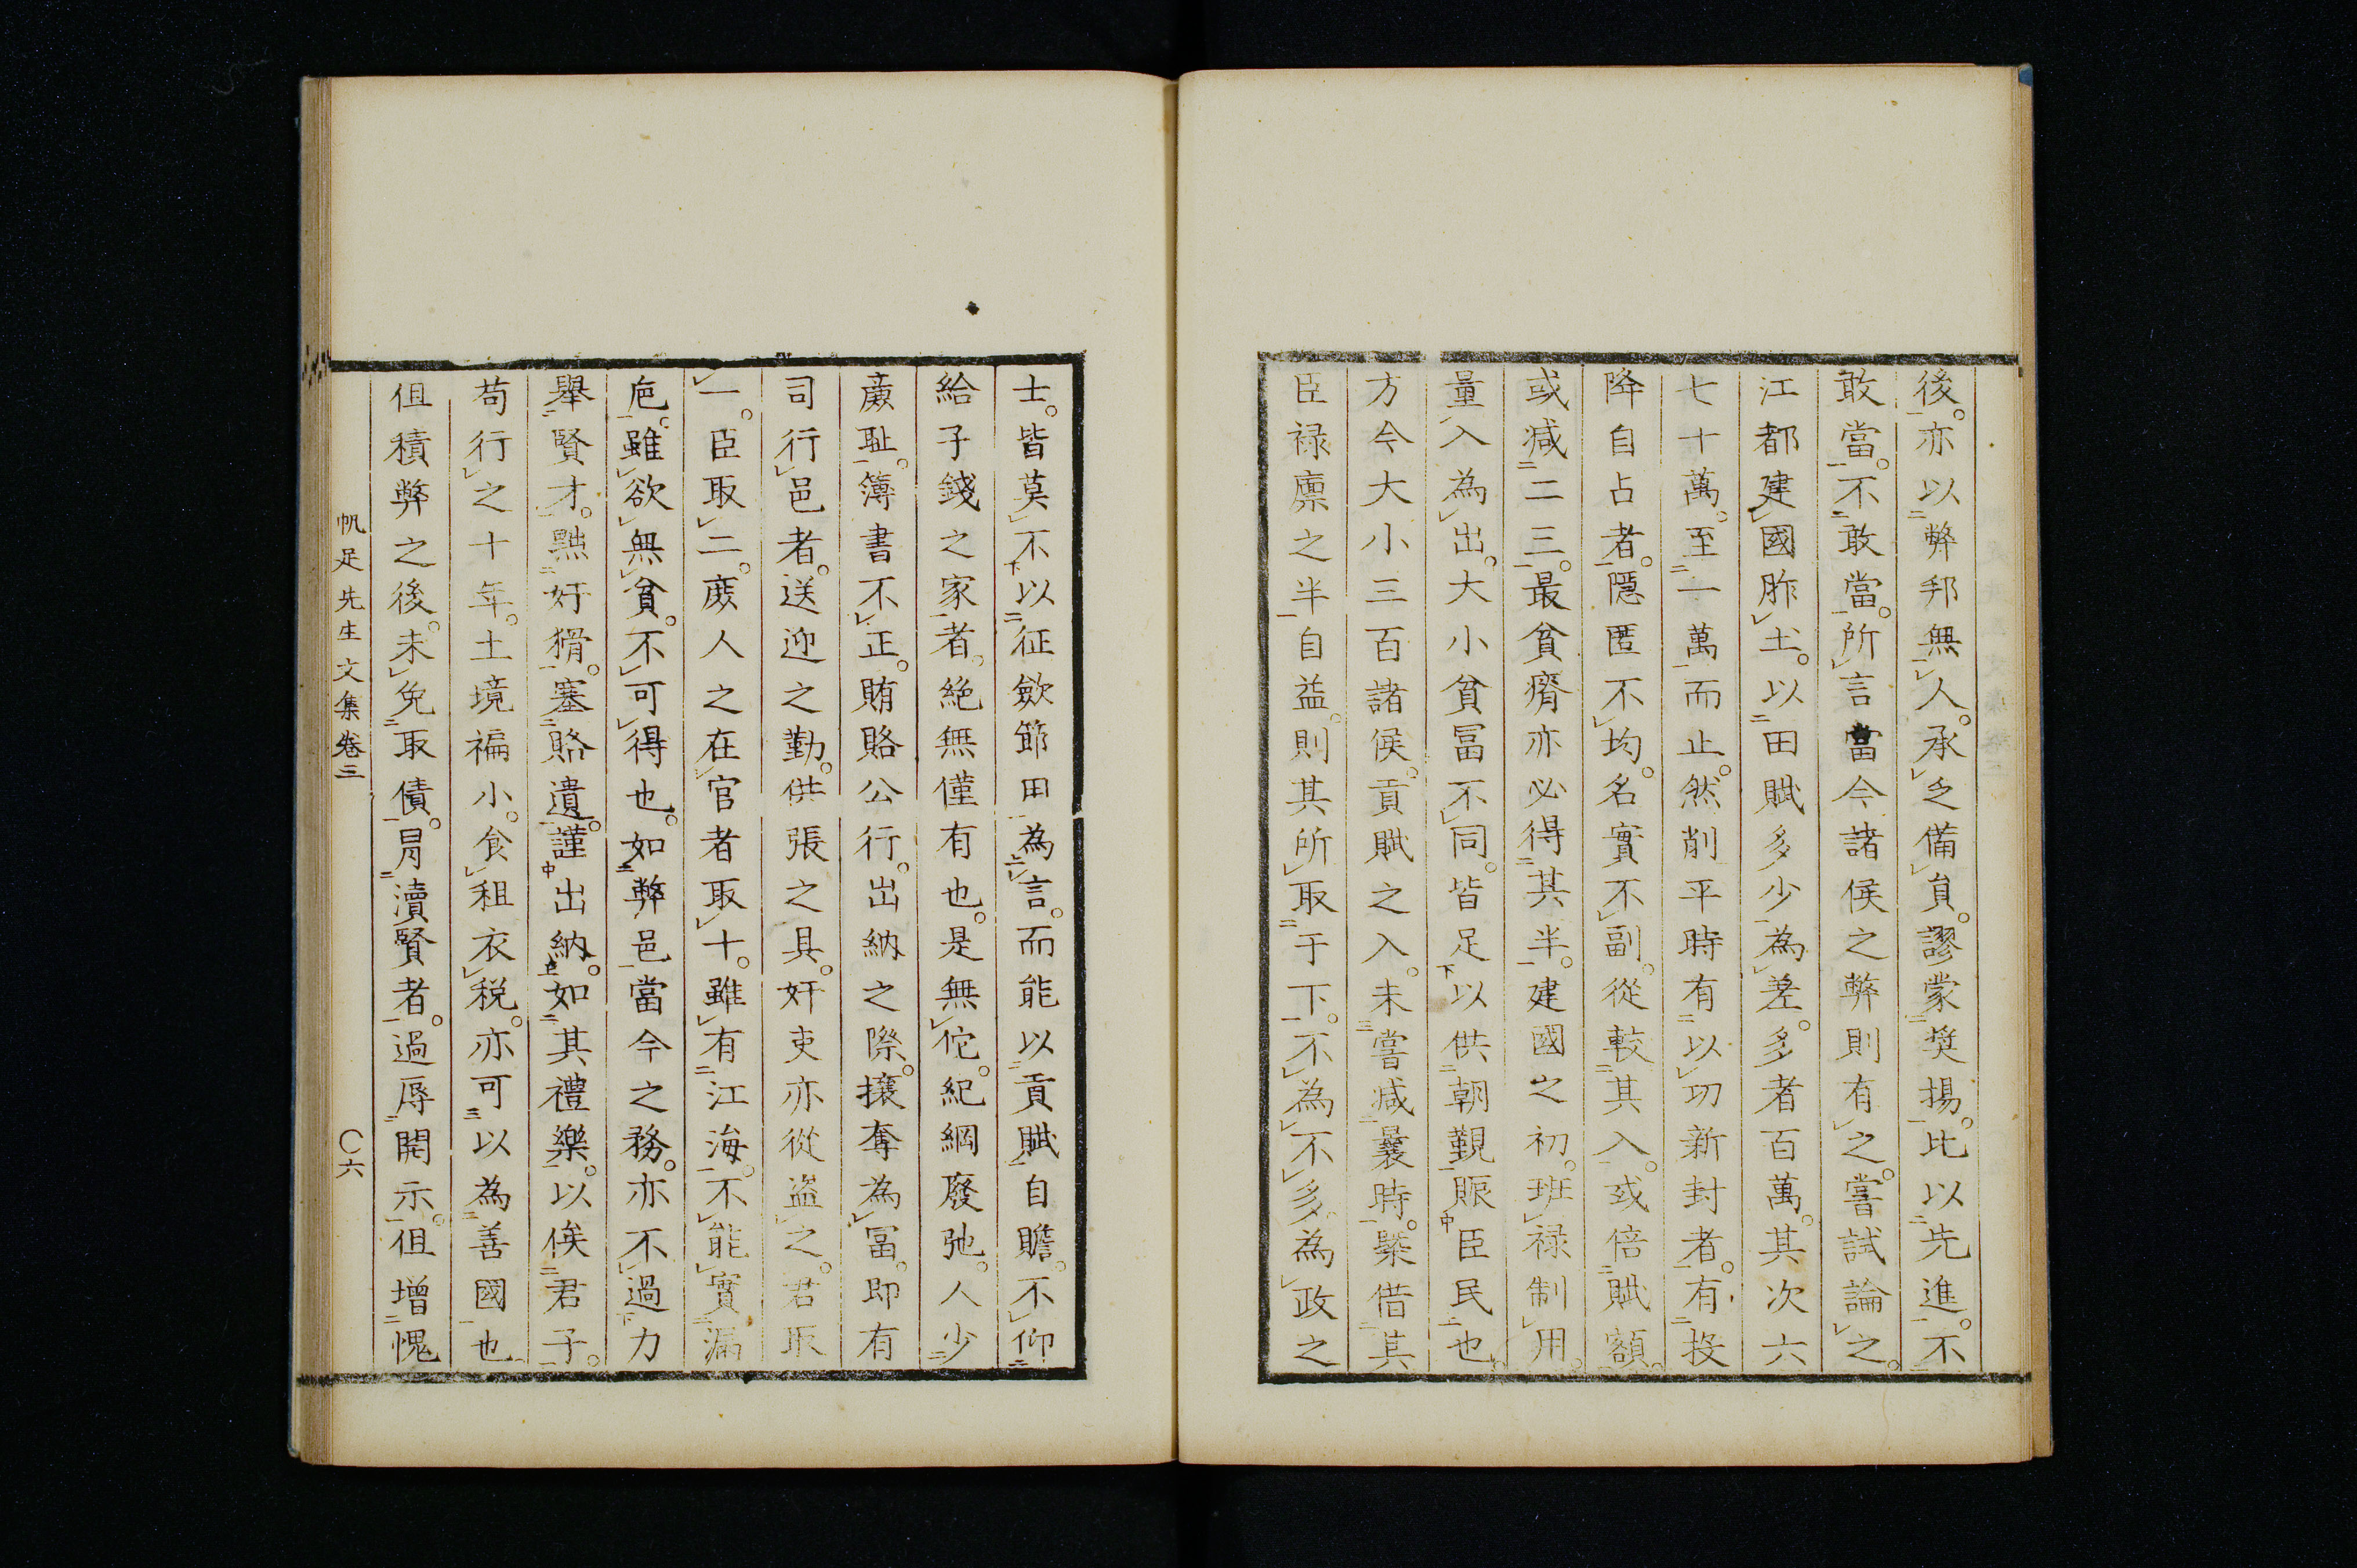 後。亦以弊邦無人。承乏備員。謬蒙奬揚。比以先進。不
敢當。不敢當。所言當今諸侯之弊則有之。嘗試論之。
江都建國胙土。以田賦多少為差。多者百萬。其次六
七十萬。至一萬而止。然削平時有以功新封者。有投
降自占者。隱匿不均。名實不副。從較其入。或倍賦額。
或減二三。最貧瘠亦必得其半。建國之初。班祿制用。
量入為出。大小貧冨不同。皆足以供朝覲賑臣民也。
方今大小三百諸侯。貢賦之入。未嘗減曩時。槩借其
臣祿廪之半自益。則其所取于下。不為不多。為政之
士。皆莫不以征歛節田為言。而能以貢賦自贍。不仰
給子錢之家者。絶無僅有也。是無佗。紀綱廢弛。人少
廉耻。簿書不正。賄賂公行。出納之際。攘奪為冨。即有
司行邑者。送迎之勤。供張之具。奸吏亦從盗之。君取
一。臣取二。庶人之在官者取十。雖有江海。不能實漏
巵。雖欲無貧。不可得也。如弊邑當今之務。亦不過力
舉賢才。黜奸猾。塞賂遺。謹出納。如其禮樂。以俟君子。
苟行之十年。土境褊小。食租衣税。亦可以為善國也
伹積弊之後。未免取債。冐瀆賢者。過辱開示。伹增愧
帆足先生文集卷三　〇六